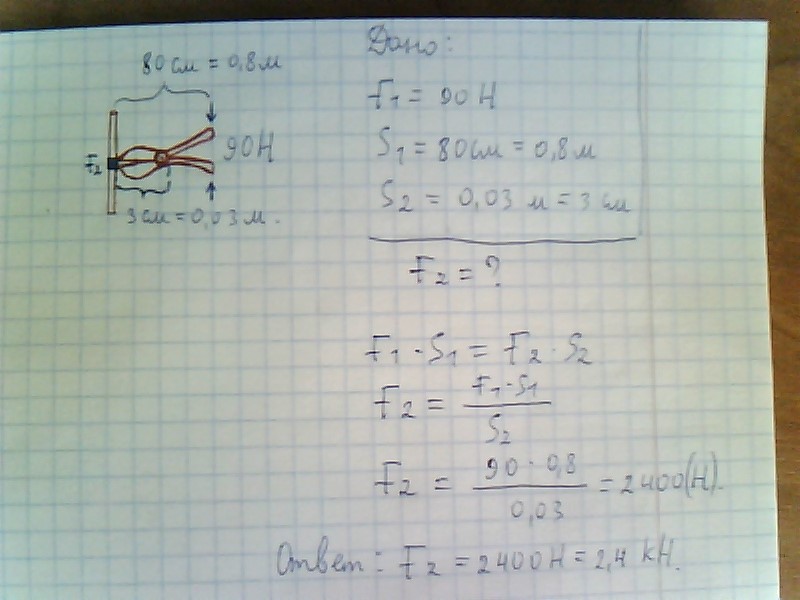 80 см = 0,8 м
F₂
90 Н
3 см = 0,03 м.
Дано:
F₁ = 90 Н
S₁ = 80 см = 0,8 м
S₂ = 0,03 м = 3 см
F₂ = ?
F₁ · S₁ = F₂ · S₂
F₂ = F₁ · S₁ / S₂
F₂ = 90 · 0,8 / 0,03 = 2400 (Н).
Ответ: F₂ = 2400 Н = 2,4 кН.